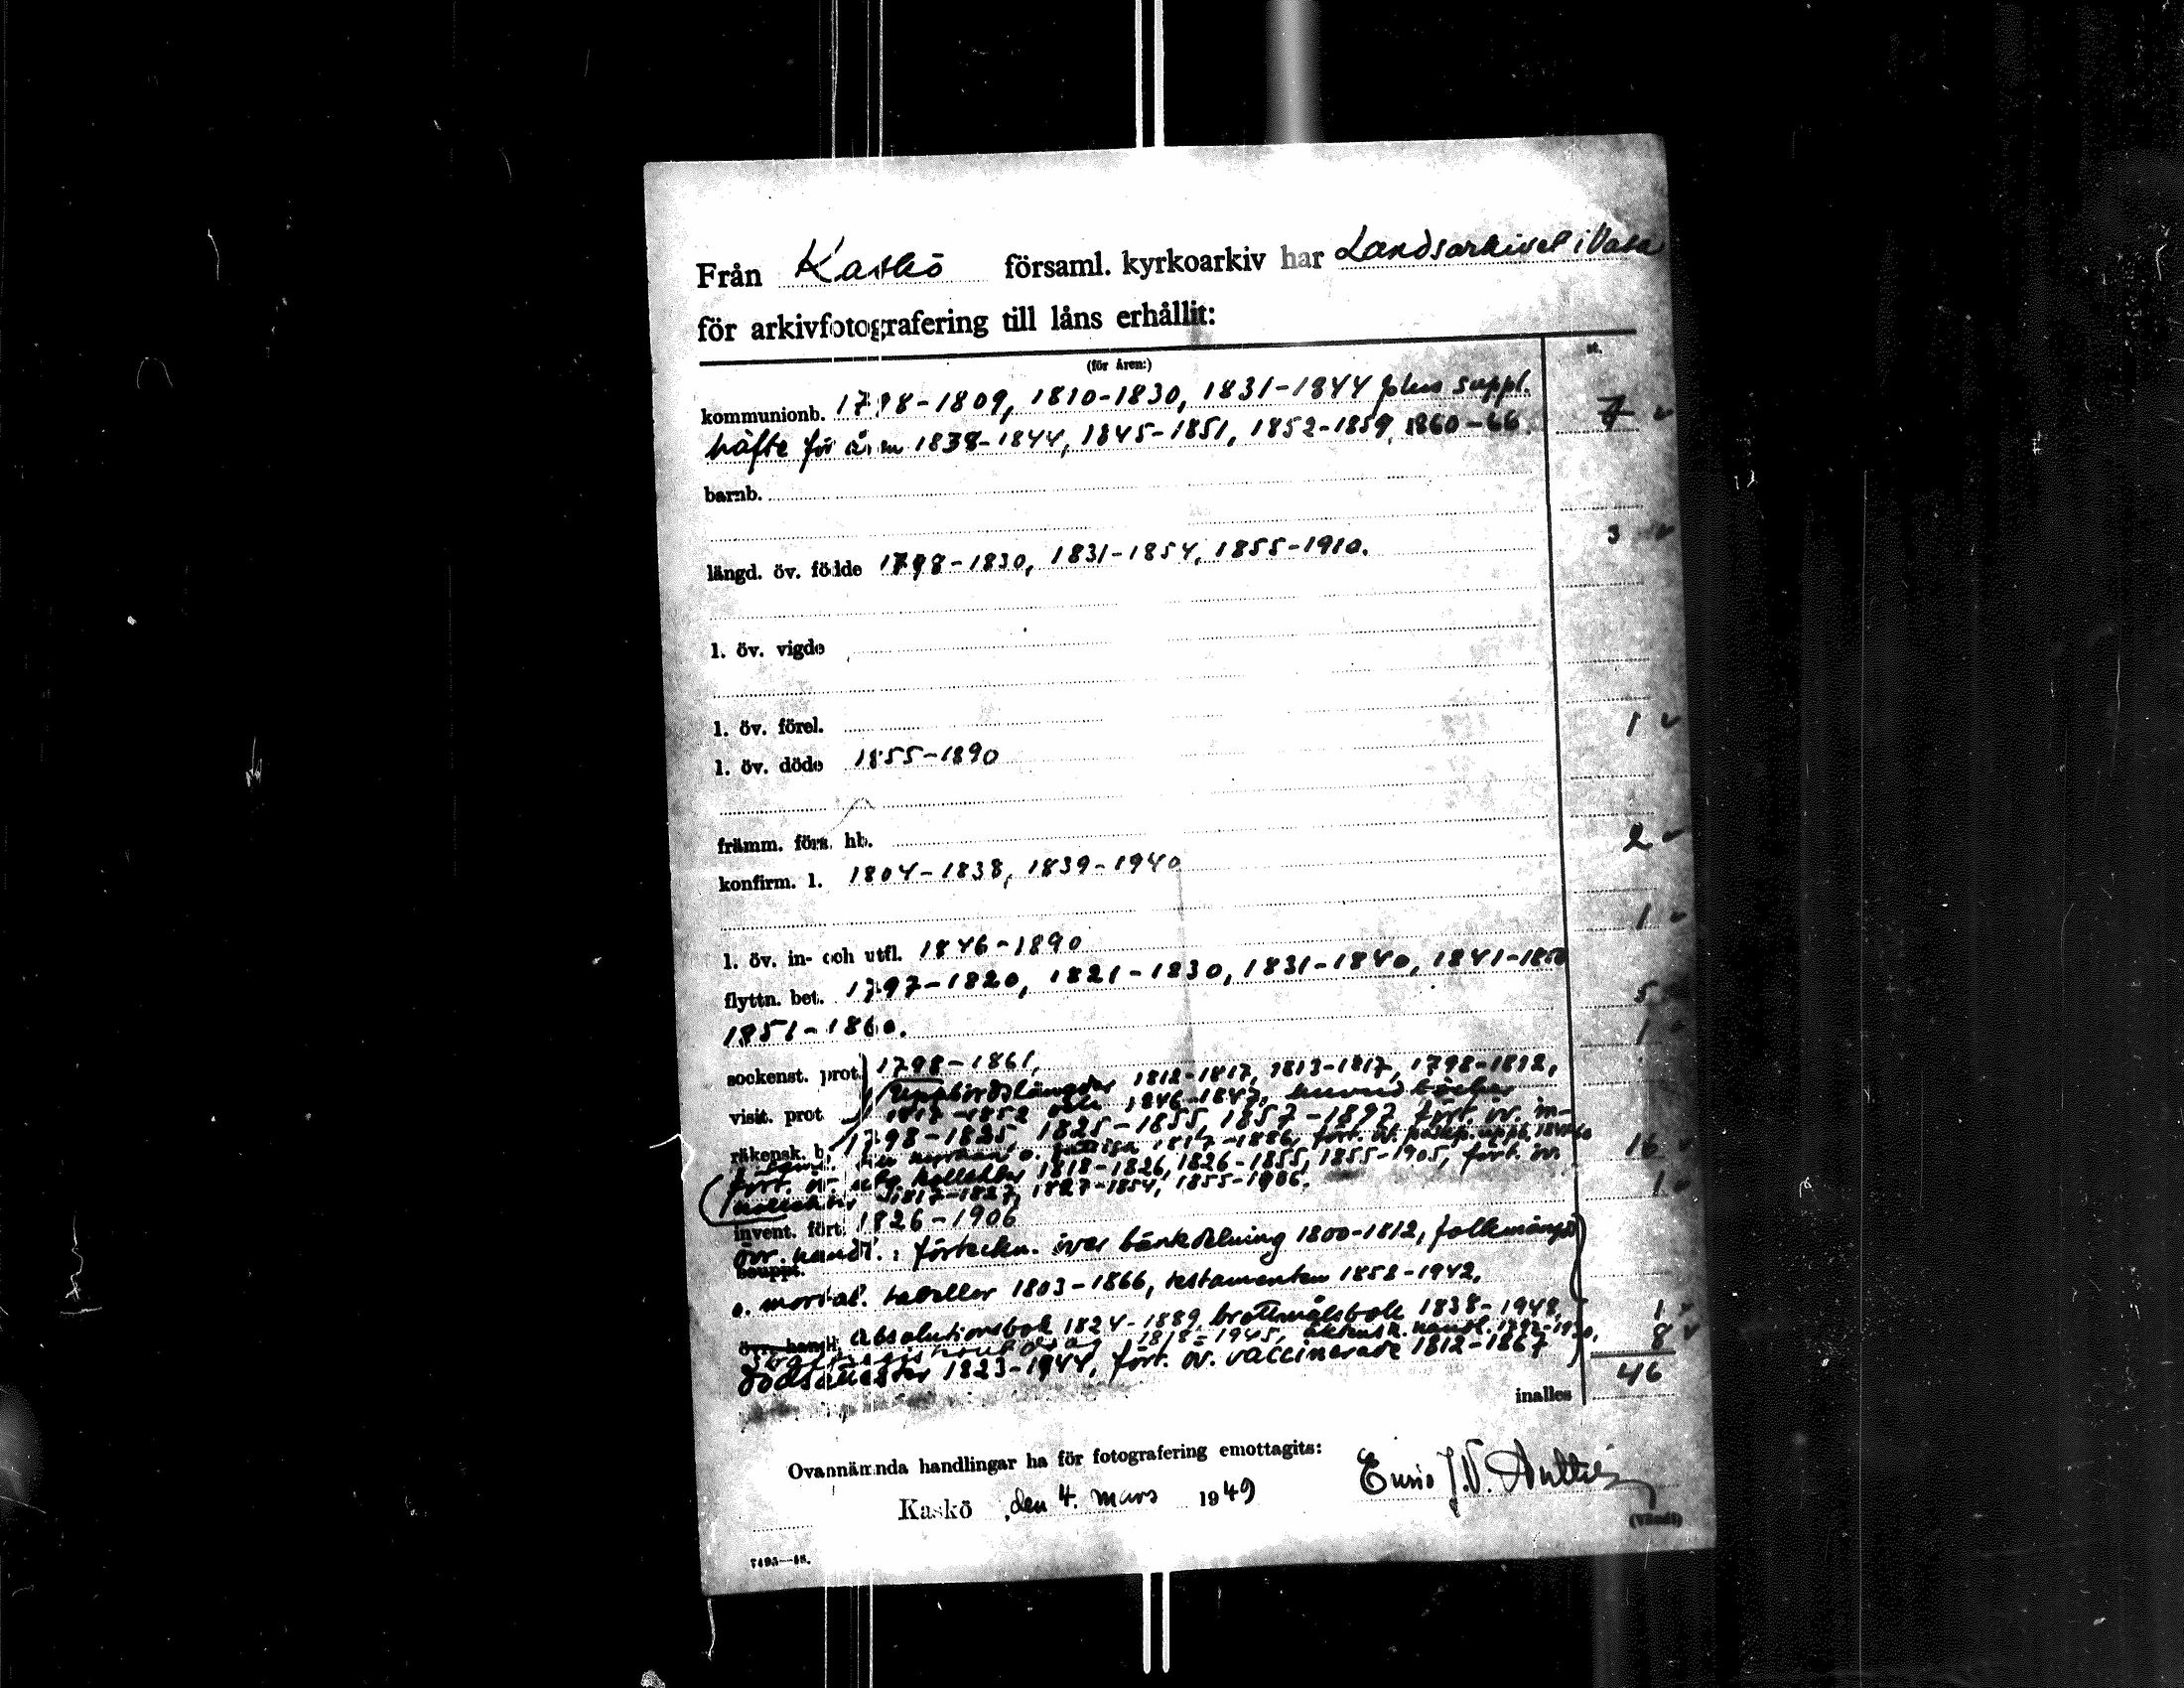 Från Kaskö församl. kyrkoarkiv har Landsarkivet i Vasa
för arkivfotografering till låns erhållit:
(för åren:) st.
kommunionb. 1798-1809, 1810-1830, 1831-1844 plus suppl.
häfte för åren 1838-1844, 1845-1851, 1852-1859, 1860-66. 7
barnb.
längd. öv. födde 1798-1830, 1831-1854, 1855-1910. 3
l. öv. vigde
l. öv. förel.
l. öv. döde 1855-1890 1
främm. förs. hb.
konfirm. l. 1804-1838, 1839-1940 2
l. öv. in- och utfl. 1846-1890 1
flyttn. bet. 1797-1820, 1821-1830, 1831-1840, 1841-1850
1851-1860. 5
sockenst. prot. 1798-1861, 1
Uppbördslängder 1812-1817, 1813-1817, 1798-1812,
visit. prot. 1817-1852 och 1846-1847,
räkensk. b. 1798-1825, 1825-1855, 1857-1897 fört. öv. in-
1817-1886, fört. öv. 16
fört. öv. kollekter 1818-1826, 1826-1855, 1855-1905, fört. öv.
1817-1827, 1827-1854, 1855-1906.
invent. fört. 1826-1906 1
övr. handl.: förteckn. över bänkdelning 1800-1812, folkmängds
bouppt.
o. mortal. tabeller 1803-1866, testamenten 1858-1942,
övr. handl. Absolutionsbok 1824-1889, brottmålsbok 1838-1948, 1
1818-1945, 8
dödsattester 1823-1944, fört. öv. vaccinerade 1812-1867
inalles 46
Ovannämnda handlingar ha för fotografering emottagits:
Kaskö, den 4. mars 1949
(Vänd!)
7493—48.